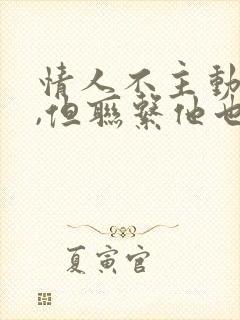 情人不主動
,但聯繫他也
夏寅官